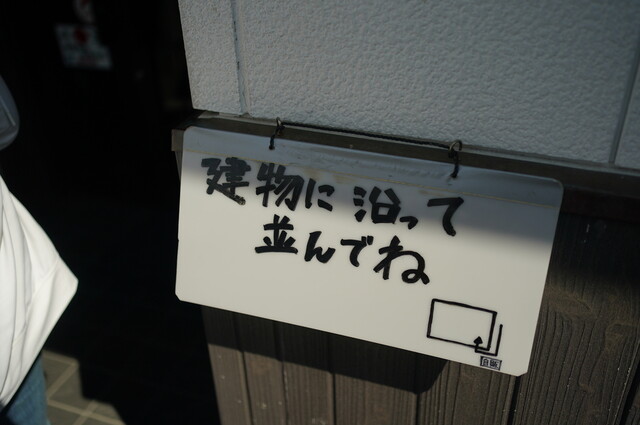 建物に沿って
並んでね